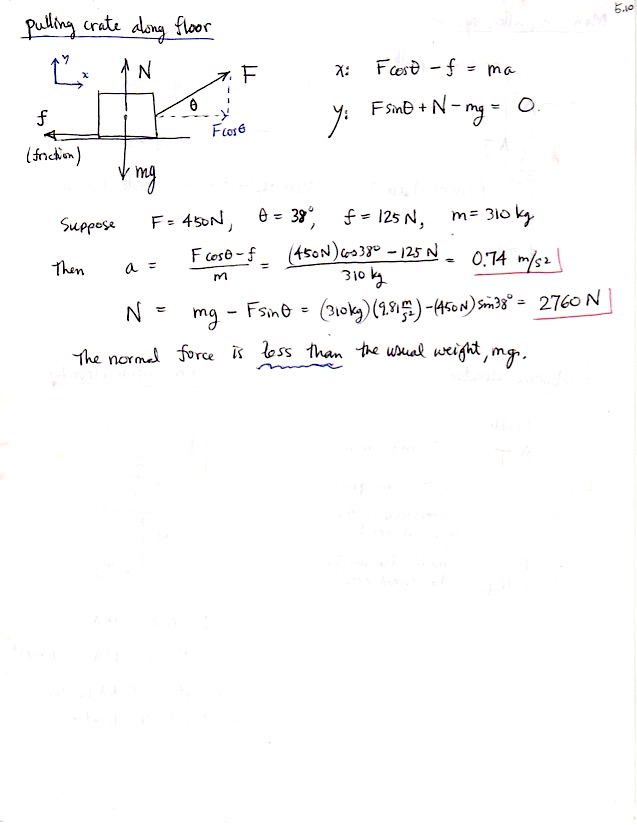 5.10
pulling crate along floor
y
x
N
F
θ
Fcosθ
f
(friction)
mg
x: Fcosθ - f = ma
y: Fsinθ + N - mg = 0.
Suppose F = 450N, θ = 38°, f = 125 N, m = 310 kg
Then a = (F cosθ - f)/m = ((450N) cos38° - 125 N)/(310 kg) = 0.74 m/s²
N = mg - Fsinθ = (310kg)(9.81 m/s²) - (450N) sin38° = 2760 N
The normal force is less than the usual weight, mg.